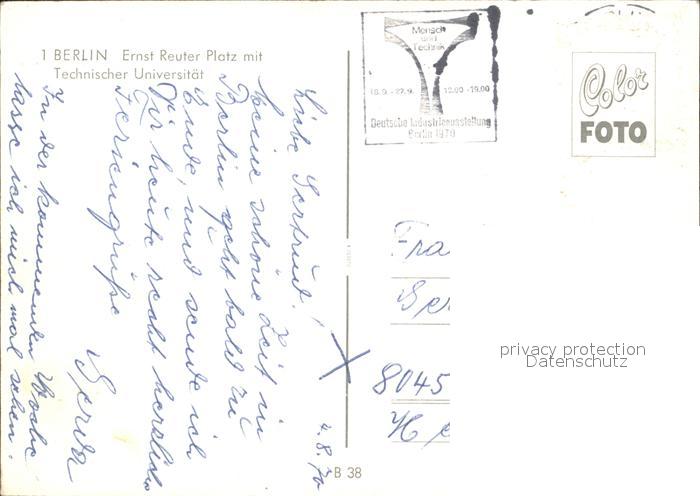 1 BERLIN Ernst Reuter Platz mit
Technischer Universität
Liebe Gertrud!
Meine schöne Zeit in
Berlin geht bald zu
Ende, und sende ich
Dir heute recht herzliche
Feriengrüße
Gerda
In der kommenden Woche
lasse ich mich mal sehen.
4.8.70
B 38
Mensch
und
Technik
18.9.-27.9. 10.00-19.00
Deutsche Industrieausstellung
Berlin 1970
Color
FOTO
Fra
Ger
8045
privacy protection
Datenschutz